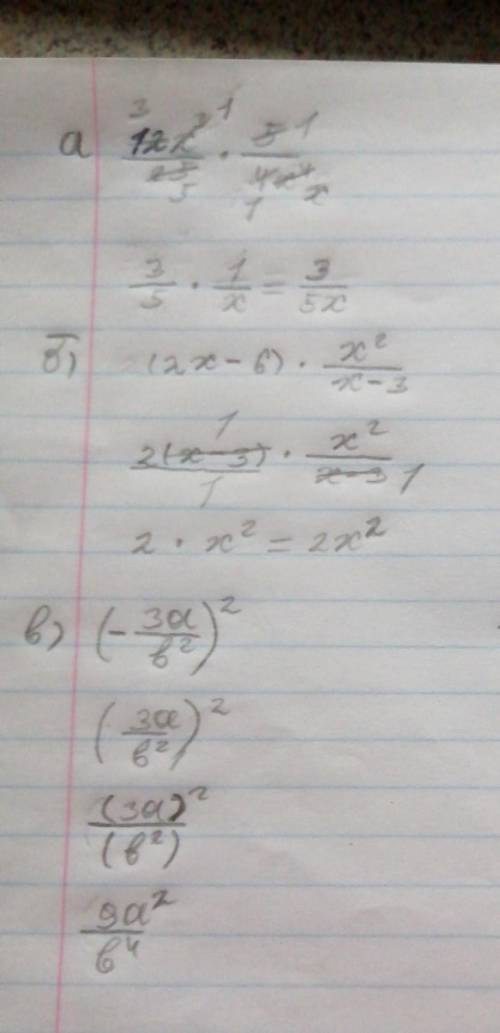 а 12x³/25 · 5/4x⁴
3 1 5 1 1 x
3/5 · 1/x = 3/5x
б) (2x – 6) · x²/x – 3
2(x – 3)/1 · x²/x – 3
1 1
2 · x² = 2x²
в) (– 3a/b²)²
(3a/b²)²
(3a)²/(b²)
9a²/b⁴